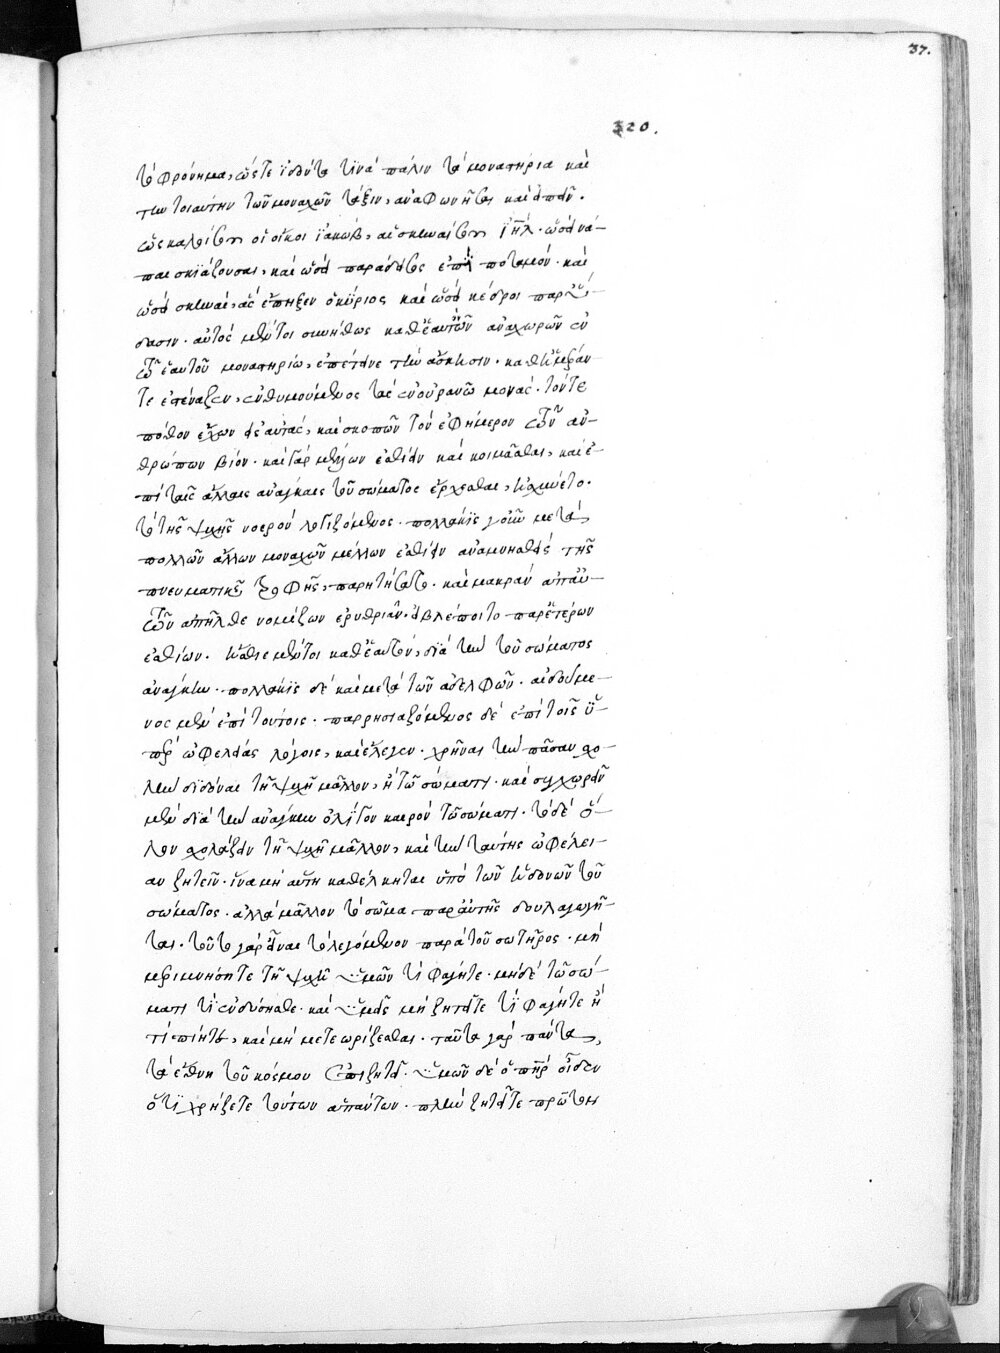 37.
320.
τὸ φρόνημα, ὥςτε ἰδόντα τινὰ πάλιν τὰ μοναστήρια καὶ
τὴν τοιαύτην τῶν μοναχῶν τάξιν, ἀναφωνῆσαι καὶ εἰπεῖν.
ὡς καλοί σου οἱ οἶκοι ἰακώβ, αἱ σκηναί σου ἰηλ. ὡσεὶ νά-
παι σκιάζουσαι, καὶ ὡσεὶ παράδεισος ἐπὶ ποταμόν. καὶ
ὡσεὶ σκηναί, ἃς ἔπηξεν ὁ κύριος καὶ ὡσεὶ κέδροι παρ' ὕ-
δασιν. αὐτὸς μέντοι συνήθως καθ' ἑαυτὸν ἀναχωρῶν ἐν
τῷ ἑαυτοῦ μοναστηρίῳ, ἐπέτεινε τὴν ἄσκησιν. καθ' ἡμέραν
τε ἐστέναζεν, ἐνθυμούμενος τὰς ἐν οὐρανῷ μονάς. τόν τε
πόθον ἔχων εἰς αὐτάς, καὶ σκοπῶν τὸν ἐφήμερον τῶν ἀν-
θρώπων βίον. καὶ γὰρ μέλλων ἐσθίειν καὶ κοιμᾶσθαι, καὶ ἐ-
πὶ ταῖς ἄλλαις ἀνάγκαις τοῦ σώματος ἔρχεσθαι, ᾐσχύνετο.
τὸ τῆς ψυχῆς νοερὸν λογιζόμενος. πολλάκις γοῦν μετὰ
πολλῶν ἄλλων μοναχῶν μέλλων ἐσθίειν ἀναμνησθεὶς τῆς
πνευματικῆς τροφῆς, παρῃτήσατο. καὶ μακρὰν ἀπ' αὐ-
τῶν ἀπῆλθε νομίζων ἐρυθριᾶν, εἰ βλέποιτο παρ' ἑτέρων
ἐσθίων. ἤσθιε μέντοι καθ' ἑαυτόν, διὰ τὴν τοῦ σώματος
ἀνάγκην. πολλάκις δὲ καὶ μετὰ τῶν ἀδελφῶν. αἰδούμε-
νος μὲν ἐπὶ τούτοις. παρρησιαζόμενος δὲ ἐπὶ τοῖς ὑ-
πὲρ ὠφελείας λόγοις, καὶ ἔλεγεν. χρῆναι τὴν πᾶσαν σχο-
λὴν διδόναι τῇ ψυχῇ μᾶλλον, ἢ τῷ σώματι. καὶ συγχωρεῖν
μὲν διὰ τὴν ἀνάγκην ὀλίγον καιρὸν τῷ σώματι. τὸ δὲ ὅ-
λον σχολάζειν τῇ ψυχῇ μᾶλλον, καὶ τὴν ταύτης ὠφέλει-
αν ζητεῖν. ἵνα μὴ αὕτη καθέλκηται ὑπὸ τῶν ἡδονῶν τοῦ
σώματος. ἀλλὰ μᾶλλον τὸ σῶμα παρ' αὐτῆς δουλαγωγῆ-
ται. τοῦτο γὰρ εἶναι τὸ λεγόμενον παρὰ τοῦ σωτῆρος. μὴ
μεριμνήσητε τῇ ψυχῇ ὑμῶν τί φάγητε. μηδὲ τῷ σώ-
ματι τί ἐνδύσησθε. καὶ ὑμεῖς μὴ ζητεῖτε τί φάγητε ἢ
τί πίητε, καὶ μὴ μετεωρίζεσθαι. ταῦτα γὰρ πάντα,
τὰ ἔθνη τοῦ κόσμου ἐπιζητεῖ. ὑμῶν δὲ ὁ πηρ οἶδεν
ὅτι χρήζετε τούτων ἁπάντων. πλὴν ζητεῖτε πρῶτον